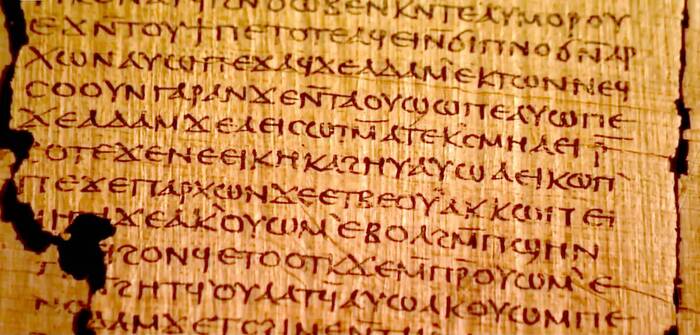 ϭⲱⲃⲉ ⲛⲕⲛⲧⲉ ⲁⲩⲙⲟⲣⲟⲩ
ⲉϫⲛ ⲧⲟⲩϯⲡⲉ ⲧⲟⲧⲉ ⲁϥⲉⲓ ⲛϭⲓ ⲡⲛⲟϭ ⲛ̄ⲁⲣ
ⲭⲱⲛ ⲁⲩⲱ ⲡⲉϫⲁϥ ϫⲉ ⲁⲇⲁⲙ ⲉⲕⲧⲱⲛ ⲛⲉϥ
ⲥⲟⲟⲩⲛ ⲅⲁⲣ ⲁⲛ ϫⲉ ⲛ̄ⲧⲁⲟⲩ ϣⲱⲡⲉ ⲁⲩⲱ ⲡⲉ
ϫⲉ ⲁⲇⲁⲙ ϫⲉ ⲁⲉⲓⲥⲱⲧⲙ̄ ⲁⲧⲉⲕⲥⲙⲏ ⲁⲉⲓⲣ̄
ϩⲟⲧⲉ ϫⲉ ⲛⲉⲉⲓⲕⲏ ⲕⲁϩⲏⲩ ⲁⲩⲱ ⲁⲉⲓⲕⲱⲡ
ⲡⲉϫⲉ ⲡⲁⲣⲭⲱⲛ ϫⲉ ⲉⲧⲃⲉ ⲟⲩ ⲁⲕⲕⲱⲡ ⲉⲓ
ϫⲉ ⲁⲕⲟⲩⲱⲙ ⲉⲃⲟⲗ ϩⲙ̄ ⲡϣⲏⲛ
ϫⲉ ⲙ̄ⲡⲣ̄ⲟⲩⲱⲙ ⲉ
ⲛϩⲏⲧϥ ⲟⲩⲁⲁⲧϥ ⲁⲩⲱ ⲁⲕⲟⲩⲱⲙ ⲡⲉ
ⲁⲇⲁⲙ ϫⲉ